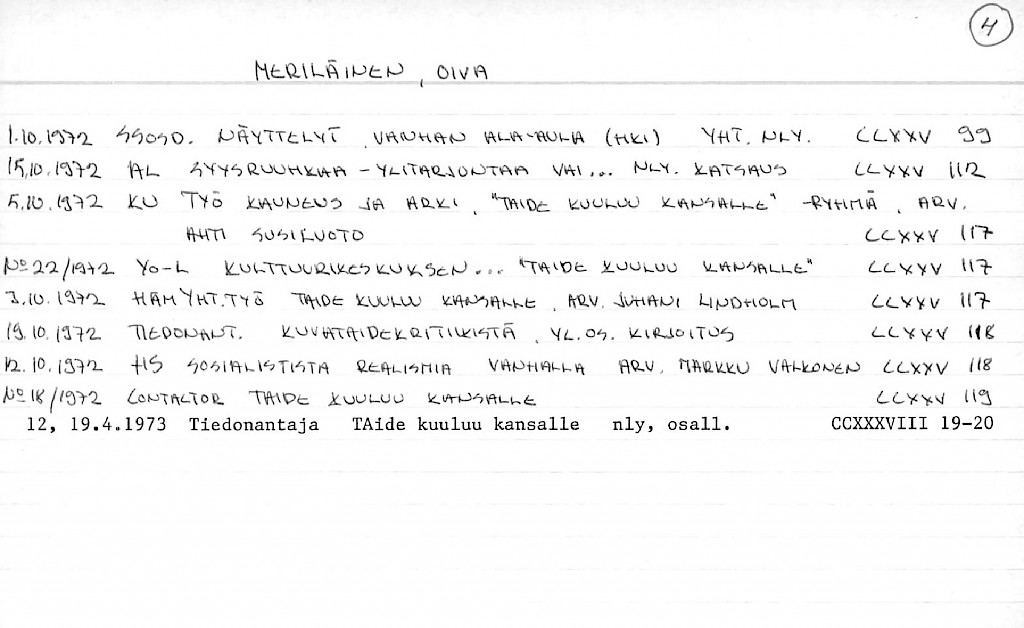 4
MERILÄINEN, OIVA
1.10.1972 SSOSD. NÄYTTELYT, VANHAN ALA-AULA (HKI) YHT. NLY. CCXXV 99
15.10.1972 AL SYYSRUUHKAA - YLITARJONTAA VAI... NLY. KATSAUS CCXXV 112
5.10.1972 KU TYÖ KAUNEUS JA ARKI, "TAIDE KUULUU KANSALLE" -RYHMÄ, ARV.
AHTI SUSILUOTO CCXXV 117
No 22/1972 YO-L KULTTUURIKESKUKSEN... "TAIDE KUULUU KANSALLE" CCXXV 117
3.10.1972 HÄMYHT.TYÖ TAIDE KUULUU KANSALLE, ARV. JUHANI LINDHOLM CCXXV 117
19.10.1972 TIEDONANT. KUVATAIDEKRITIIKISTÄ, YL.OS. KIRJOITUS CCXXV 118
12.10.1972 HS SOSIALISTISTA REALISMIA VANHALLA ARV. MARKKU VALKONEN CCXXV 118
No 18/1972 CONTACTOR TAIDE KUULUU KANSALLE CCXXV 119
12, 19.4.1973 Tiedonantaja TAide kuuluu kansalle nly, osall. CCXXXVIII 19-20